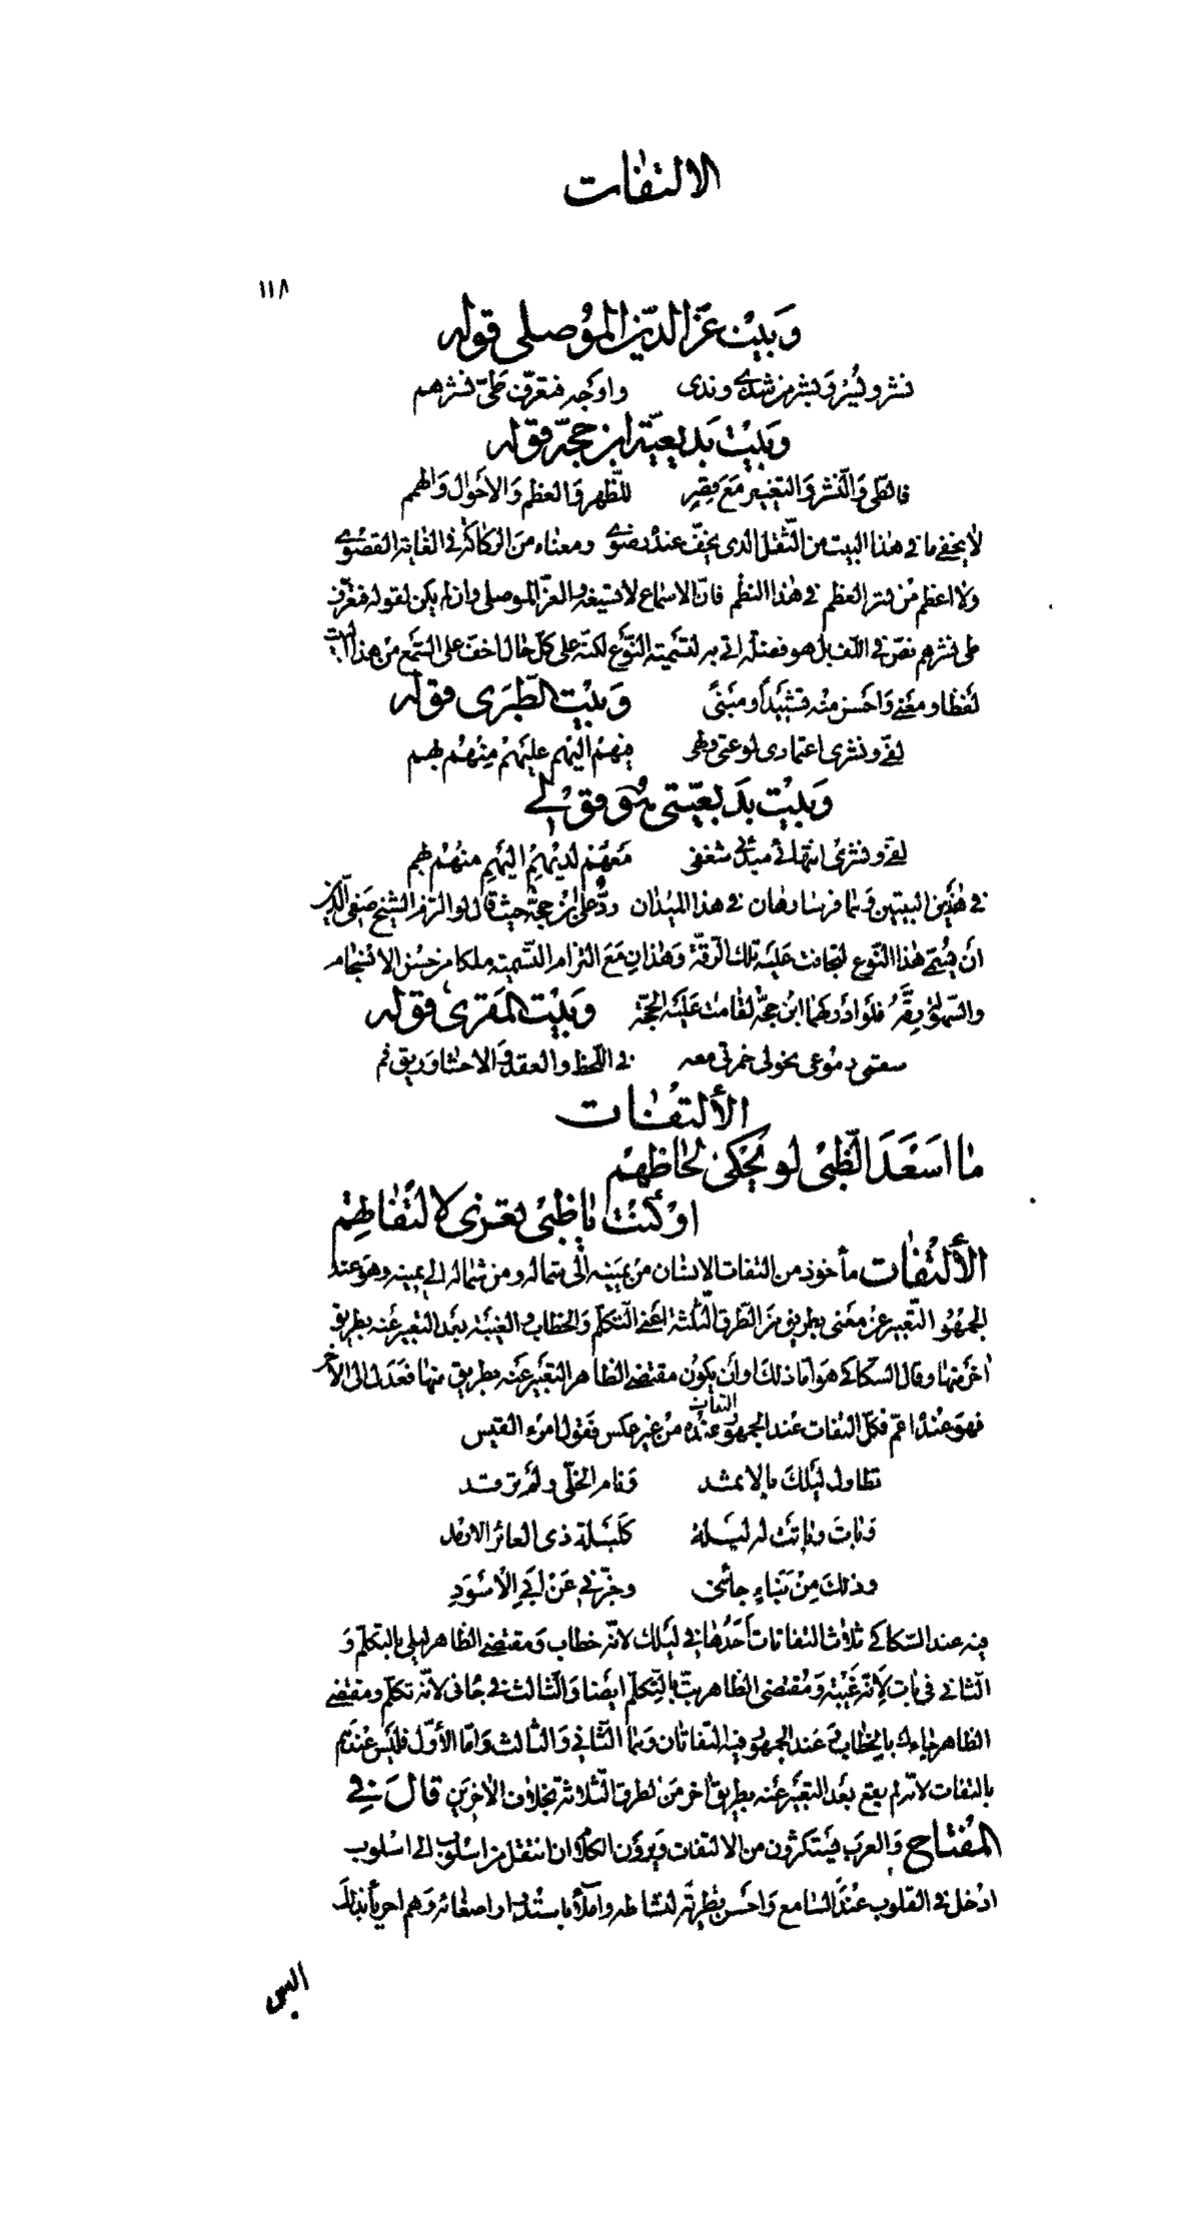 الالتفات
١١٨
وبيت عز الدين الموصلي قوله
نشر ويسر وبشر من شذى وندى واوجه فتعرف طي نشرهم
وبيت بديعية ابن حجة قوله
فالطي والنشر والتغيير مع قصر للظهر والعظم والاحوال والهمم
لا يخفى ما في هذا البيت من الثقل الذي يخف عنده رضوى ومعناه من الركاكة في الغاية القصوى
ولا اعظم من العظم في هذا النظم فان الاسماع لا تسيغه والعز الموصلي وان لم يكن لقوله فتعرف
طي نشرهم نص في اللف بل هو فضلة اتى به لتسمية النوع لكنه على كل حال اخف على السمع من هذا البيت
لفظا ومعنى واحسن منه تشييدا ومبنى وبيت الطبري قوله
لفي ونشري اعتمادي لوعتي ولهي منهم اليهم عليهم منهم بهم
وبيت بديعيتي هو قولي
لفي ونشري انتهائي مبدئي شغفي معهم لديهم اليهم منهم بهم
في هذين البيتين وهما فرسا رهان في هذا الميدان رد على ابن حجة حيث قال لو الزم الشيخ صفي الدين
ان يسمي هذا النوع لتجافت عليه تلك الرقة وهذان مع التزام التسمية ملكا من حسن الانسجام
والسهولة رقة فلو ادركهما ابن حجة لقامت عليه الحجة وبيت المقري قوله
سقمي دموعي نحولي خمرتي معه في اللحظ والعقد والاحشا وريق فم
الألتفات
ما اسعد الظبي لو يحكي لحاظهم
او كنت يا ظبي تعزى لالتفاتهم
الألتفات مأخوذ من التفات الانسان من يمينه الى شماله ومن شماله الى يمينه وهو عند
الجمهور التعبير عن معنى بطريق من الطرق الثلثة اعني التكلم والخطاب والغيبة بعد التعبير عنه بطريق
اخر منها وقال السكاكي هو اما ذلك او أن يكون مقتضى الظاهر التعبير عنه بطريق منها فعدل الى الاخر
فهو عنده اعم فكل التفات عند الجمهور التفات عنده من غير عكس فقول امرء القيس
تطاول ليلك بالاثمد ونام الخلي ولم ترقد
وبات وباتت له ليلة كليلة ذي العائر الارمد
وذلك من نباء جائني وخبرني عن ابي الأسود
فيه عند السكاكي ثلاث التفاتات أحدها في ليلك لانه خطاب ومقتضى الظاهر ليلي بالتكلم و
الثاني في بات لانه غيبة ومقتضى الظاهر بت بالتكلم ايضا والثالث في جائني لانه تكلم ومقتضى
الظاهر جاءك بالخطاب عند الجمهور فيه التفاتان وهما الثاني والثالث واما الأول فليس عندهم
بالتفات لانه لم يقع بعد التعبير عنه بطريق اخر من الطرق الثلاثة بخلاف الاخرين قال في
المفتاح والعرب يستكثرون من الالتفات ويرون الكلام اذا انتقل من اسلوب الى اسلوب
ادخل في القلوب عند السامع واحسن تطرية لنشاطه واملأ باستدرار اصغائه وهم احرياء بذلك
اليس